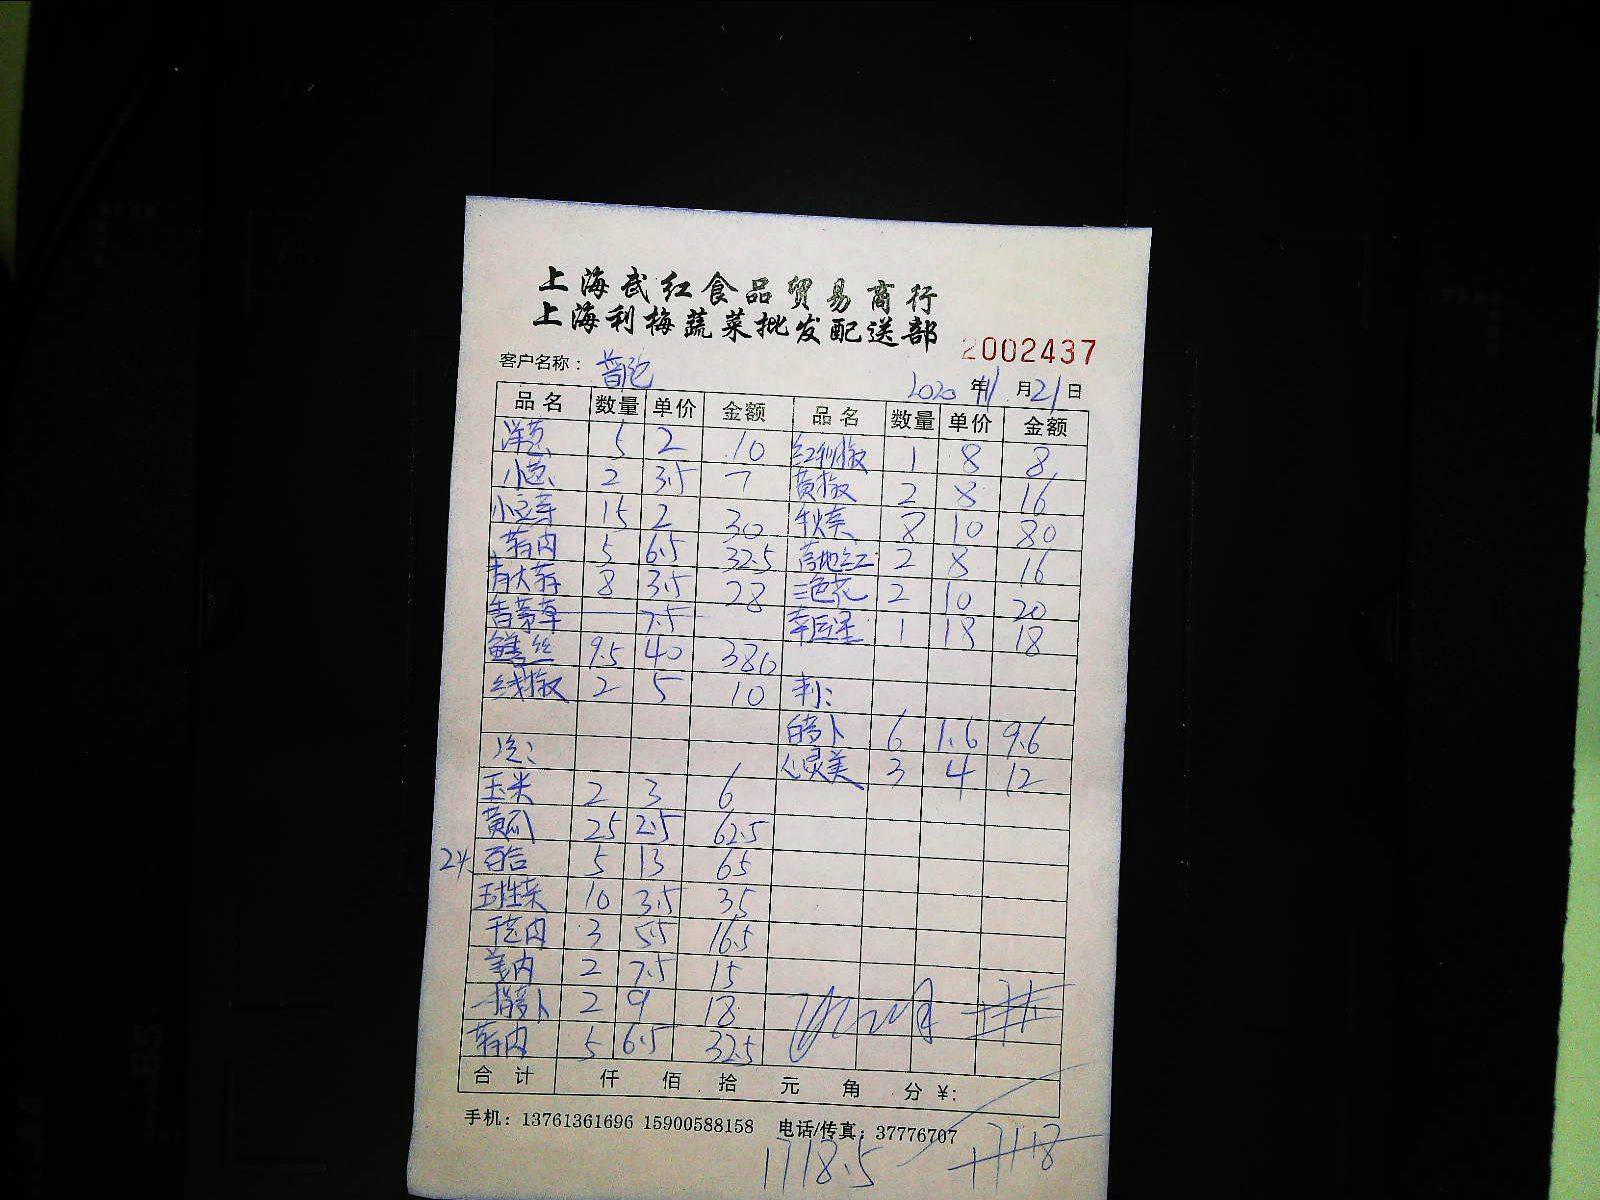 上海武红食品贸易商行
上海利梅蔬菜批发配送部
2002437
客户名称：
2020年11月21日
品名 数量 单价 金额 品名 数量 单价 金额
洋葱 5 2 10 红利椒 1 8 8
小葱 2 3.5 7 黄椒 2 8 16
小豆芽 15 2 30 8 10 80
莴内 5 6.5 32.5 2 8 16
青大蒜 8 3.5 28 三色花 2 10 20
香茅草 — 7.5 1 18 18
鳝丝 9.5 40 380
线椒 2 5 10
白萝卜 6 1.6 9.6
冷： 心灵美 3 4 12
玉米 2 3 6
黄瓜 25 2.5 62.5
百合 5 13 65
10 3.5 35
3 5.5 16.5
姜内 2 7.5 15
2 9 18
莴内 5 6.5 32.5
合计 仟 佰 拾 元 角 分 ¥:
手机：13761361696 15900588158 电话/传真：37776707